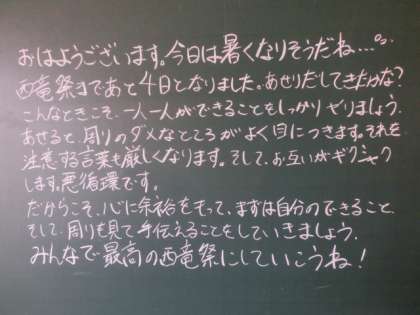 おはようございます。今日は暑くなりそうだね…。
西竜祭まであと4日となりました。あせりだしてきたかな?
こんなときこそ、一人一人ができることをしっかりやりましょう。
あせると、周りのダメなところがよく目につきます。それを
注意する言葉も厳しくなります。そして、お互いがギクシャク
します。悪循環です。
だからこそ、心に余裕をもって、まずは自分のできること、
そして、周りも見て手伝えることをしていきましょう。
みんなで最高の西竜祭にしていこうね!